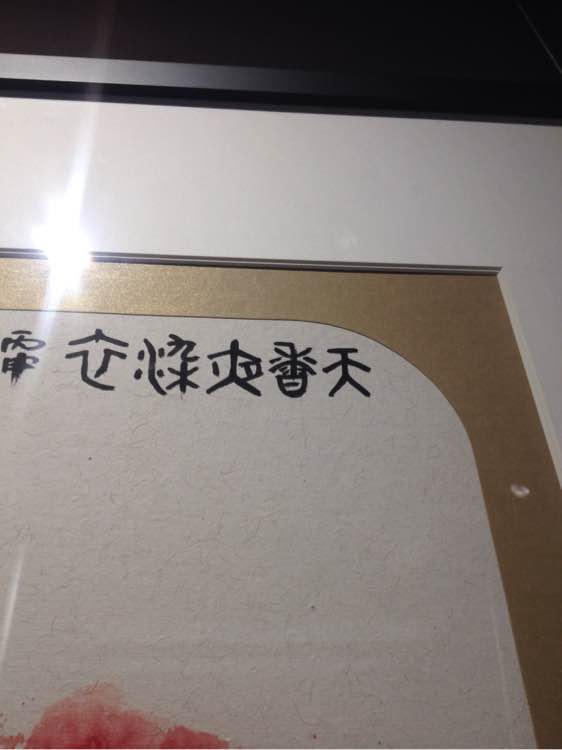 天香夜染衣